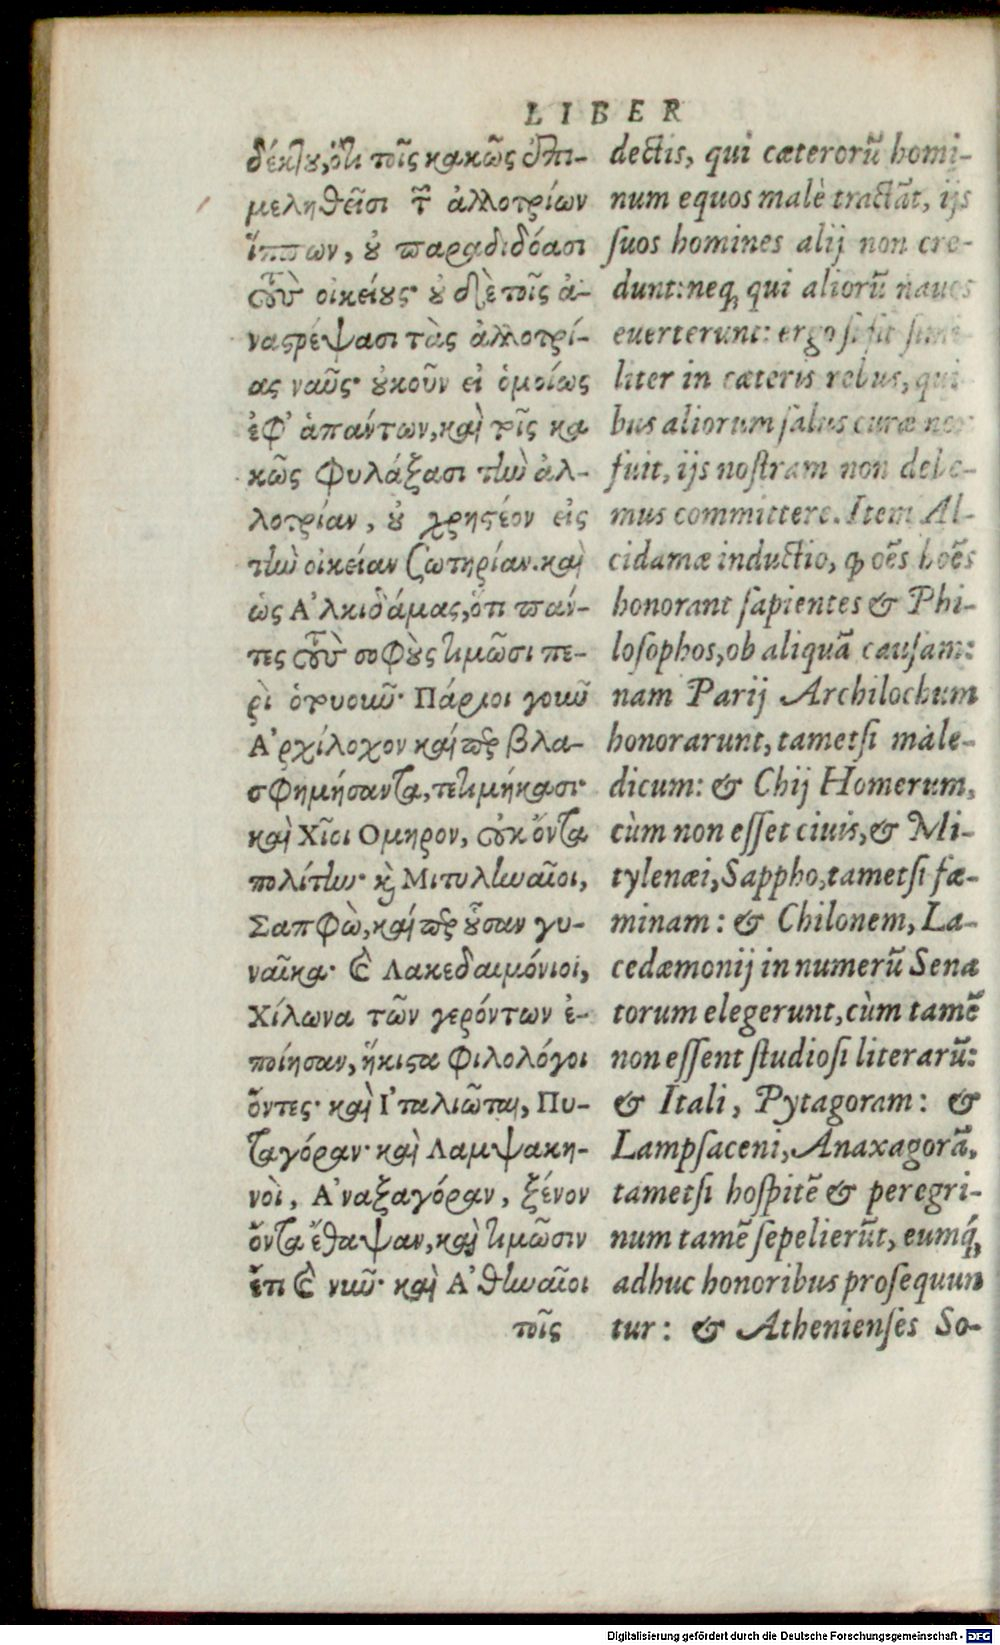 LIBER
δέκτου, ὅτι τοῖς κακῶς ἐπι-
μεληθεῖσι τῶν ἀλλοτρίων
ἵππων, οὐ παραδιδόασι
τοὺς οἰκείους· οὐδὲ τοῖς ἀ-
ναστρέψασι τὰς ἀλλοτρί-
ας ναῦς· οὐκοῦν εἰ ὁμοίως
ἐφ' ἁπάντων, καὶ τοῖς κα
κῶς φυλάξασι τὴν ἀλ-
λοτρίαν, οὐ χρηστέον εἰς
τὴν οἰκείαν σωτηρίαν. καὶ
ὡς Ἀλκιδάμας, ὅτι πάν-
τες τοὺς σοφοὺς τιμῶσι πε-
ρὶ ὁτυοιοῦν· Πάριοι γοῦν
Ἀρχίλοχον καίπερ βλα-
σφημήσαντα, τετιμήκασι·
καὶ Χῖοι Ομηρον, οὐκ ὄντα
πολίτην· καὶ Μιτυληναῖοι,
Σαπφὼ, καίπερ οὖσαν γυ-
ναῖκα· καὶ Λακεδαιμόνιοι,
Χίλωνα τῶν γερόντων ἐ-
ποίησαν, ἥκιστα φιλολόγοι
ὄντες· καὶ Ἰταλιῶται, Πυ-
ταγόραν· καὶ Λαμψακη-
νοὶ, Ἀναξαγόραν, ξένον
ὄντα ἔθαψαν, καὶ τιμῶσιν
ἔτι καὶ νῦν· καὶ Ἀθηναῖοι
τοῖς
dectis, qui cæterorũ homi-
num equos malè tractãt, ijs
suos homines alij non cre-
dunt: neq; qui aliorũ naues
euerterunt: ergo si sit simi-
liter in cæteris rebus, qui
bus aliorum salus curæ non
fuit, ijs nostram non debe-
mus committere. Item Al-
cidamæ inductio, ꝙ oẽs hoẽs
honorant sapientes & Phi-
losophos, ob aliquã causam:
nam Parij Archilochum
honorarunt, tametsi male-
dicum: & Chij Homerum,
cùm non esset ciuis, & Mi-
tylenæi, Sappho, tametsi fæ-
minam: & Chilonem, La-
cedæmonij in numerũ Sena
torum elegerunt, cùm tamẽ
non essent studiosi literarũ:
& Itali, Pytagoram: &
Lampsaceni, Anaxagorã,
tametsi hospitẽ & peregri-
num tamẽ sepelierũt, eumq́;
adhuc honoribus prosequun
tur: & Athenienses So-
Digitalisierung gefördert durch die Deutsche Forschungsgemeinschaft - DFG